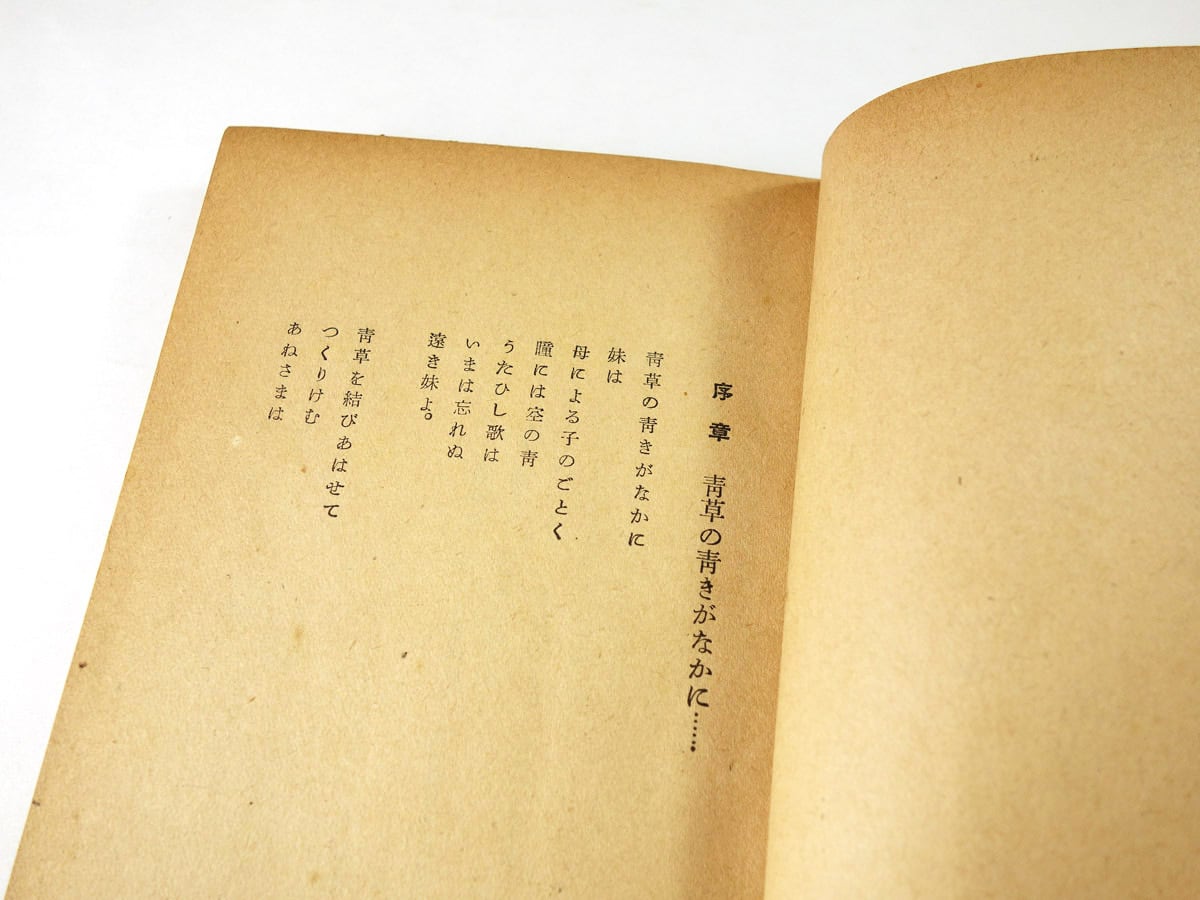 序章　靑草の靑きがなかに……
靑草の靑きがなかに
妹は
母による子のごとく
瞳には空の靑
うたひし歌は
いまは忘れぬ
遠き妹よ。
靑草を結びあはせて
つくりけむ
あねさまは